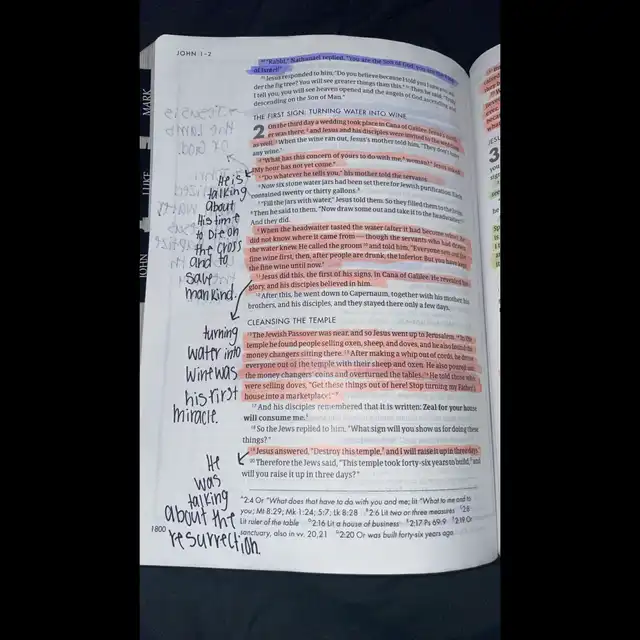 JOHN 1–2
MARK
LUKE
JOHN
"Rabbi," Nathanael replied, "You are the Son of God; you are the King
of Israel!"
Jesus responded to him, "Do you believe because I told you I saw you
under the fig tree? You will see greater things than this." Then he said, "Truly
I tell you, you will see heaven opened and the angels of God ascending and
descending on the Son of Man."
THE FIRST SIGN: TURNING WATER INTO WINE
2 On the third day a wedding took place in Cana of Galilee. Jesus's
er was there, ² and Jesus and his disciples were invited to the wedding
as well. ³ When the wine ran out, Jesus's mother told him, "They don't have
any wine."
⁴ "What has this concern of yours to do with me, woman?" Jesus asked.
"My hour has not yet come."
⁵ "Do whatever he tells you," his mother told the servants.
⁶ Now six stone water jars had been set there for Jewish purification. Each
contained twenty or thirty gallons.
⁷ "Fill the jars with water," Jesus told them. So they filled them to the brim.
⁸ Then he said to them, "Now draw some out and take it to the headwaiter."
And they did.
⁹ When the headwaiter tasted the water (after it had become wine), he
did not know where it came from — though the servants who had drawn
the water knew. He called the groom ¹⁰ and told him, "Everyone sets out the
fine wine first, then, after people are drunk, the inferior. But you have kept
the fine wine until now."
¹¹ Jesus did this, the first of his signs, in Cana of Galilee. He revealed his
glory, and his disciples believed in him.
¹² After this, he went down to Capernaum, together with his mother, his
brothers, and his disciples, and they stayed there only a few days.
CLEANSING THE TEMPLE
¹³ The Jewish Passover was near, and so Jesus went up to Jerusalem. ¹⁴ In the
temple he found people selling oxen, sheep, and doves, and he also found the
money changers sitting there. ¹⁵ After making a whip out of cords, he drove
everyone out of the temple with their sheep and oxen. He also poured out
the money changers' coins and overturned the tables. ¹⁶ He told those who
were selling doves, "Get these things out of here! Stop turning my Father's
house into a marketplace!"
¹⁷ And his disciples remembered that it is written: Zeal for your house
will consume me.
¹⁸ So the Jews replied to him, "What sign will you show us for doing these
things?"
¹⁹ Jesus answered, "Destroy this temple, and I will raise it up in three days."
²⁰ Therefore the Jews said, "This temple took forty-six years to build, and
will you raise it up in three days?"
He is
talking
about
His time
to Die on
the cross
and to
save
mankind.
turning
water into
wine was
his first
miracle.
He
was
talking
about the
resurrection
2:4 Or "What does that have to do with you and me; lit "What to me and to
you; Mt 8:29; Mk 1:24; 5:7; Lk 8:28 2:6 Lit two or three measures 2:8
Lit ruler of the table 2:16 Lit a house of business 2:17 Ps 69:9 2:19 Or
sanctuary, also in vv. 20,21 2:20 Or was built forty-six years ago
1800
3